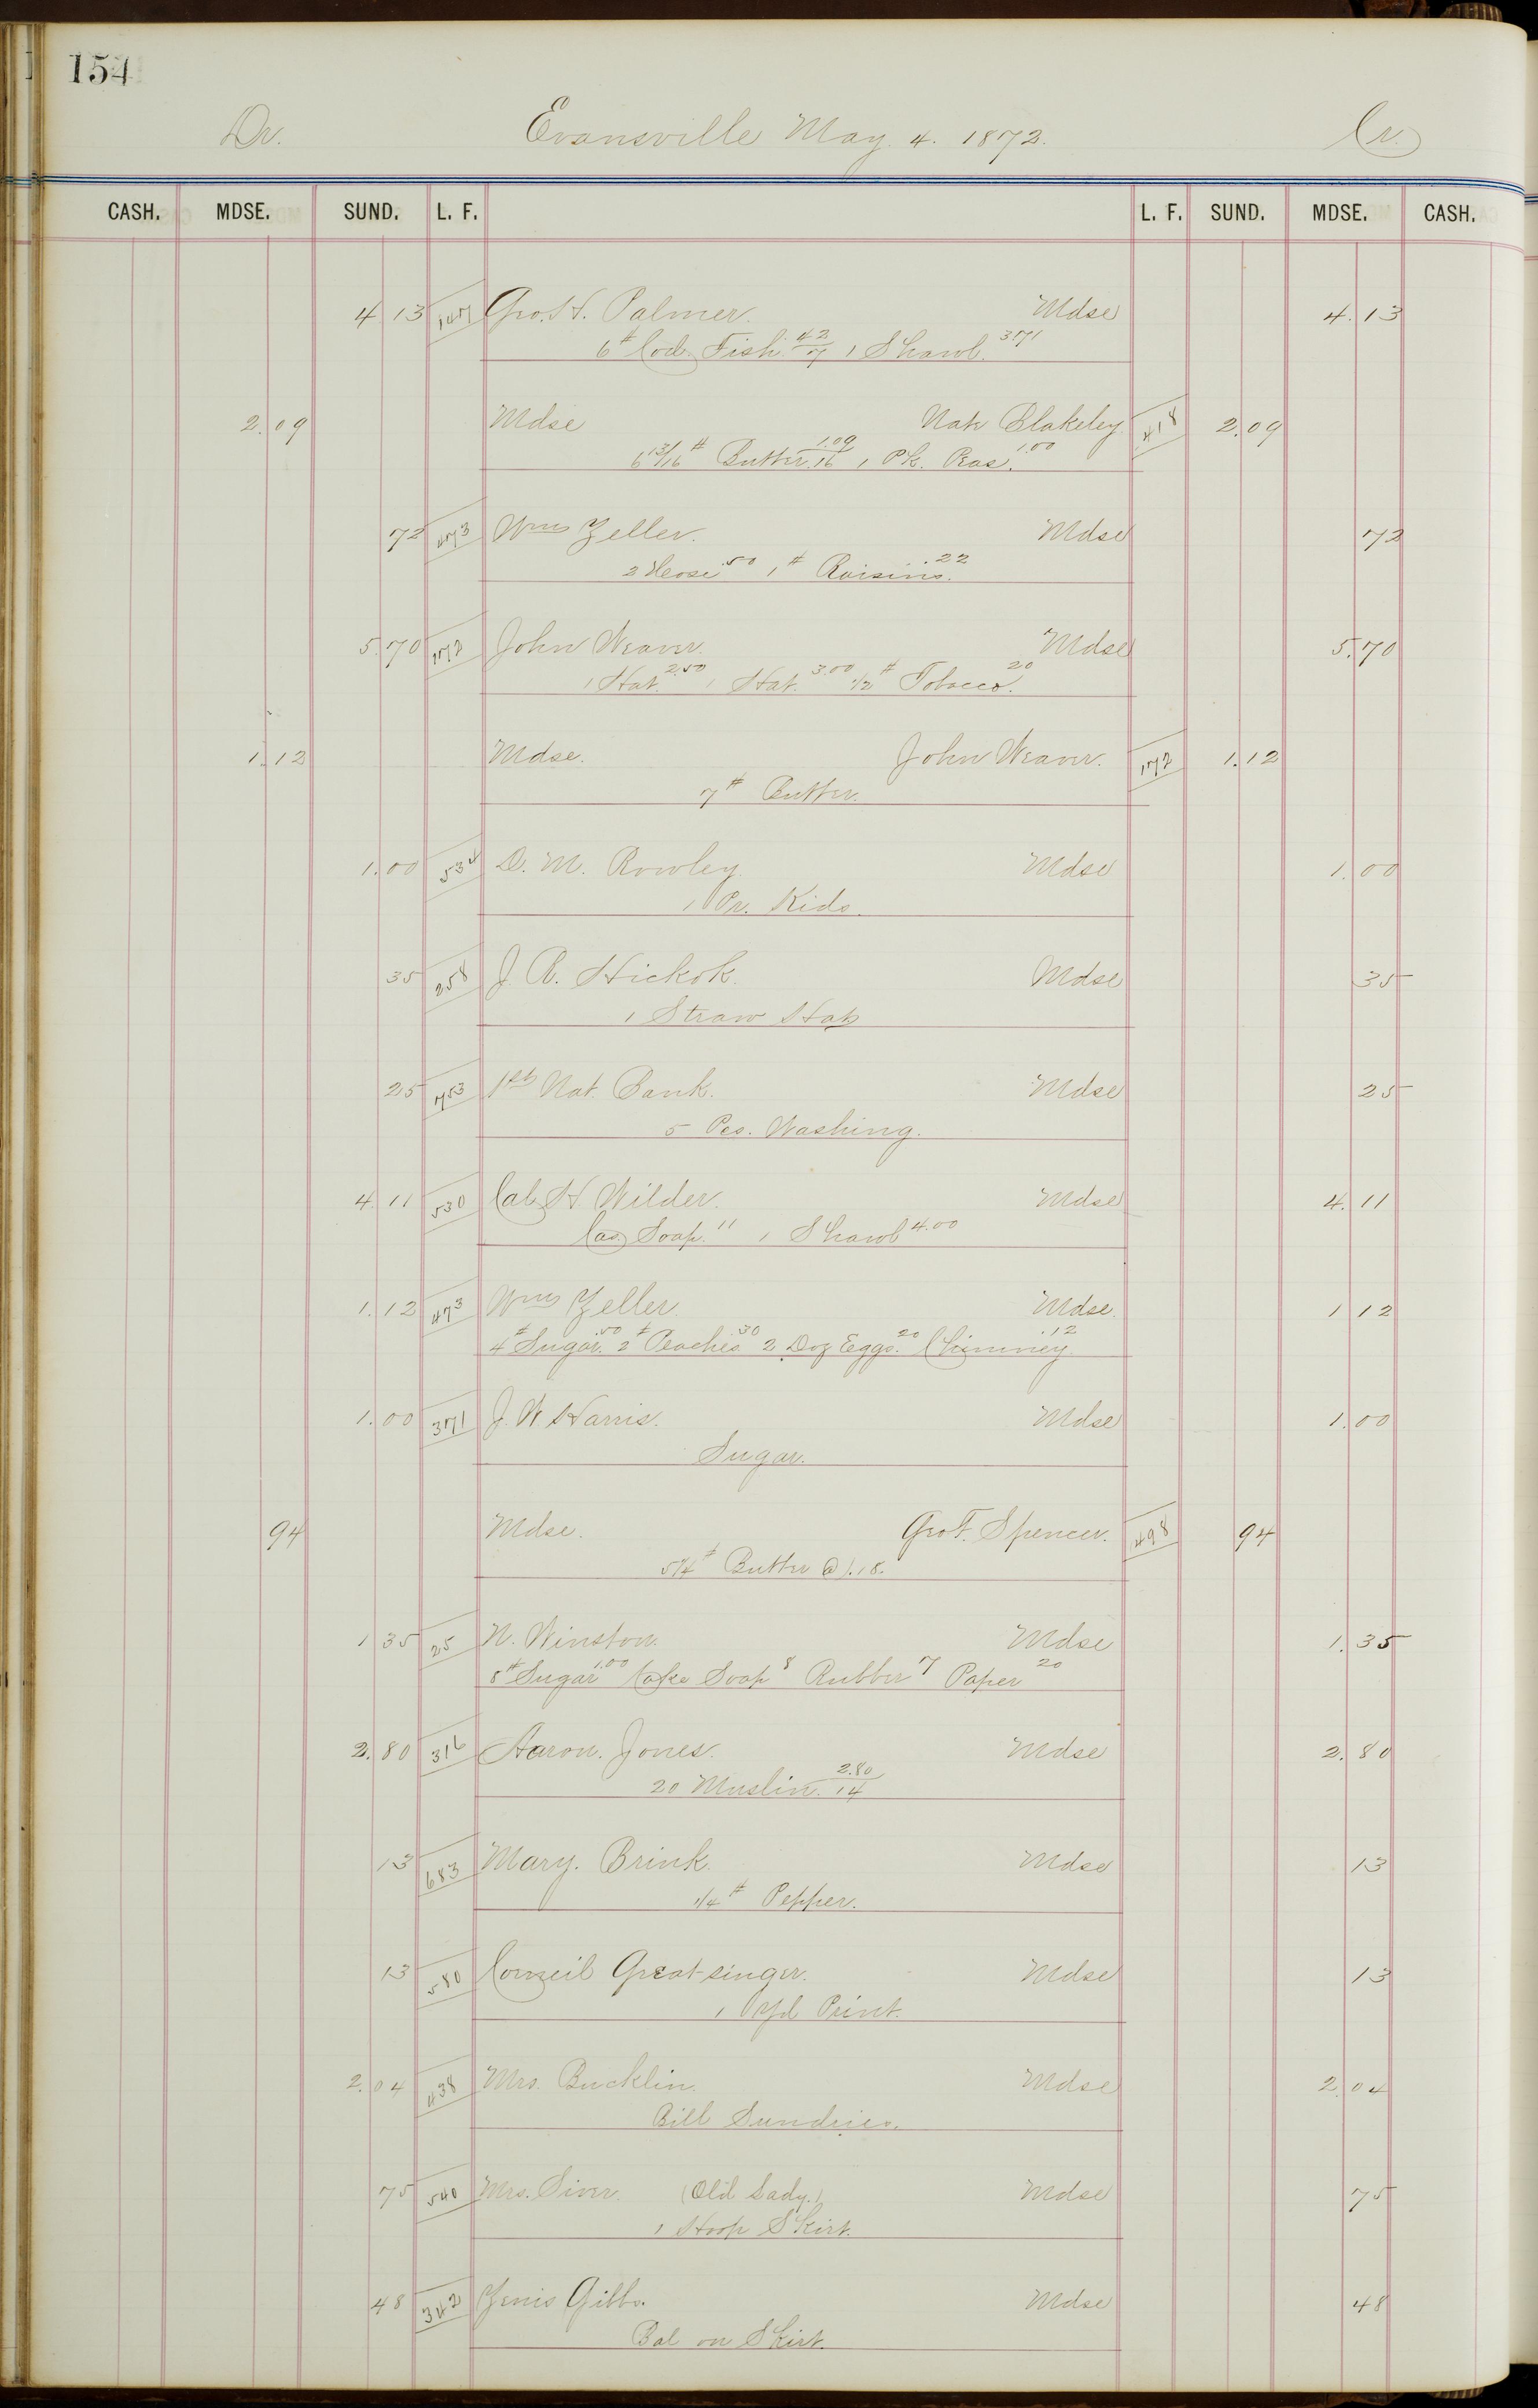 154
Dr. Evansville May. 4. 1872. Cr.
CASH. MDSE. SUND. L. F. L. F. SUND. MDSE. CASH.
4 13 Geo. H. Palmer. Mdse 4.13
6# Cod. Fish. 42/7 1 Shawl. 3.71
2.09 Mdse Nat Blakeley 418 2.09
6 13/16# Butter. 1.09/16 1 Pk. Peas. 1.00
72 473 Wm Zeller. Mdse 72
2 Hose .50 1# Raisins. .22
5.70 172 John Weaver. Mdse 5.70
1 Hat. 2.50 1 Hat. 3.00 1/2# Tobacco. 20
1.12 Mdse. John Weaver. 172 1.12
7# Butter.
1.00 534 D. M. Rowley. Mdse 1.00
1 Pr. Kids.
35 258 J. A. Hickok. Mdse 35
1 Straw Hat
25 753 1st Nat. Bank. Mdse 25
5 Pcs. Washing.
4.11 530 Cal H Wilder. Mdse 4.11
Cas. Soap. 11 1 Shawl 4.00
1.12 473 Wm Zeller Mdse. 1 12
4# Sugar .50 2# Peaches .30 2 Doz Eggs. 20 Chimney. .12
1.00 371 J. W Harris. Mdse 1.00
Sugar.
94 Mdse. Geo F. Spencer. 498 94
5 1/4# Butter @ .18.
1 35 25 N. Winston. Mdse 1.35
8# Sugar 1.00 Cake Soap 8 Rubber 7 Paper 20
2.80 316 Aaron. Jones. Mdse 2.80
20 Muslin. 2.80/14
13 683 Mary. Brink. Mdse 13
1/4# Pepper.
13 580 Greatsinger. Mdse 13
1 Yd Print.
2.04 438 Mrs. Bucklin. Mdse 2.04
Bill Sundries.
75 540 Mrs. Siver. (Old Lady.) Mdse 75
1 Hoop Skirt.
48 342 Gibbs. Mdse 48
Bal on Skirt.